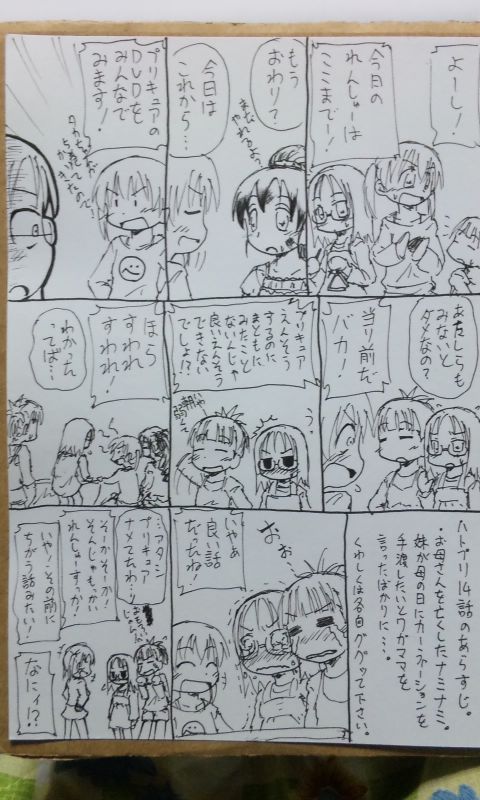 よーし!
今日の
れんしゅーは
ここまでー!
もう
おわり?
まだ
やれるよう
今日は
これから…
プリキュアの
DVDを
みんなで
みます!
あたしらも
みないと
ダメなの?
当り前だ
バカ!
プリキュア
えんそう
するのに
まともに
みたこと
ないんじゃ
良いえんそう
できない
でしょ!?
ほら
すわれ
すわれ!
わかった
ってば…
ハトプリ14話のあらすじ。
・お母さんを亡くしたナミナミ。
妹が母の日にカーネーションを
手渡したいとワガママを
言ったばかりに…。
くわしくは各自ググって下さい。
おぉ…
いやぁ
良い話
だったね!
…アタシ
プリキュア
ナメてたわ…
そーかそーか!
そんじゃもっかい
れんしゅーすっか!
いや、その前に
ちがう話みたい!
なにィ!?